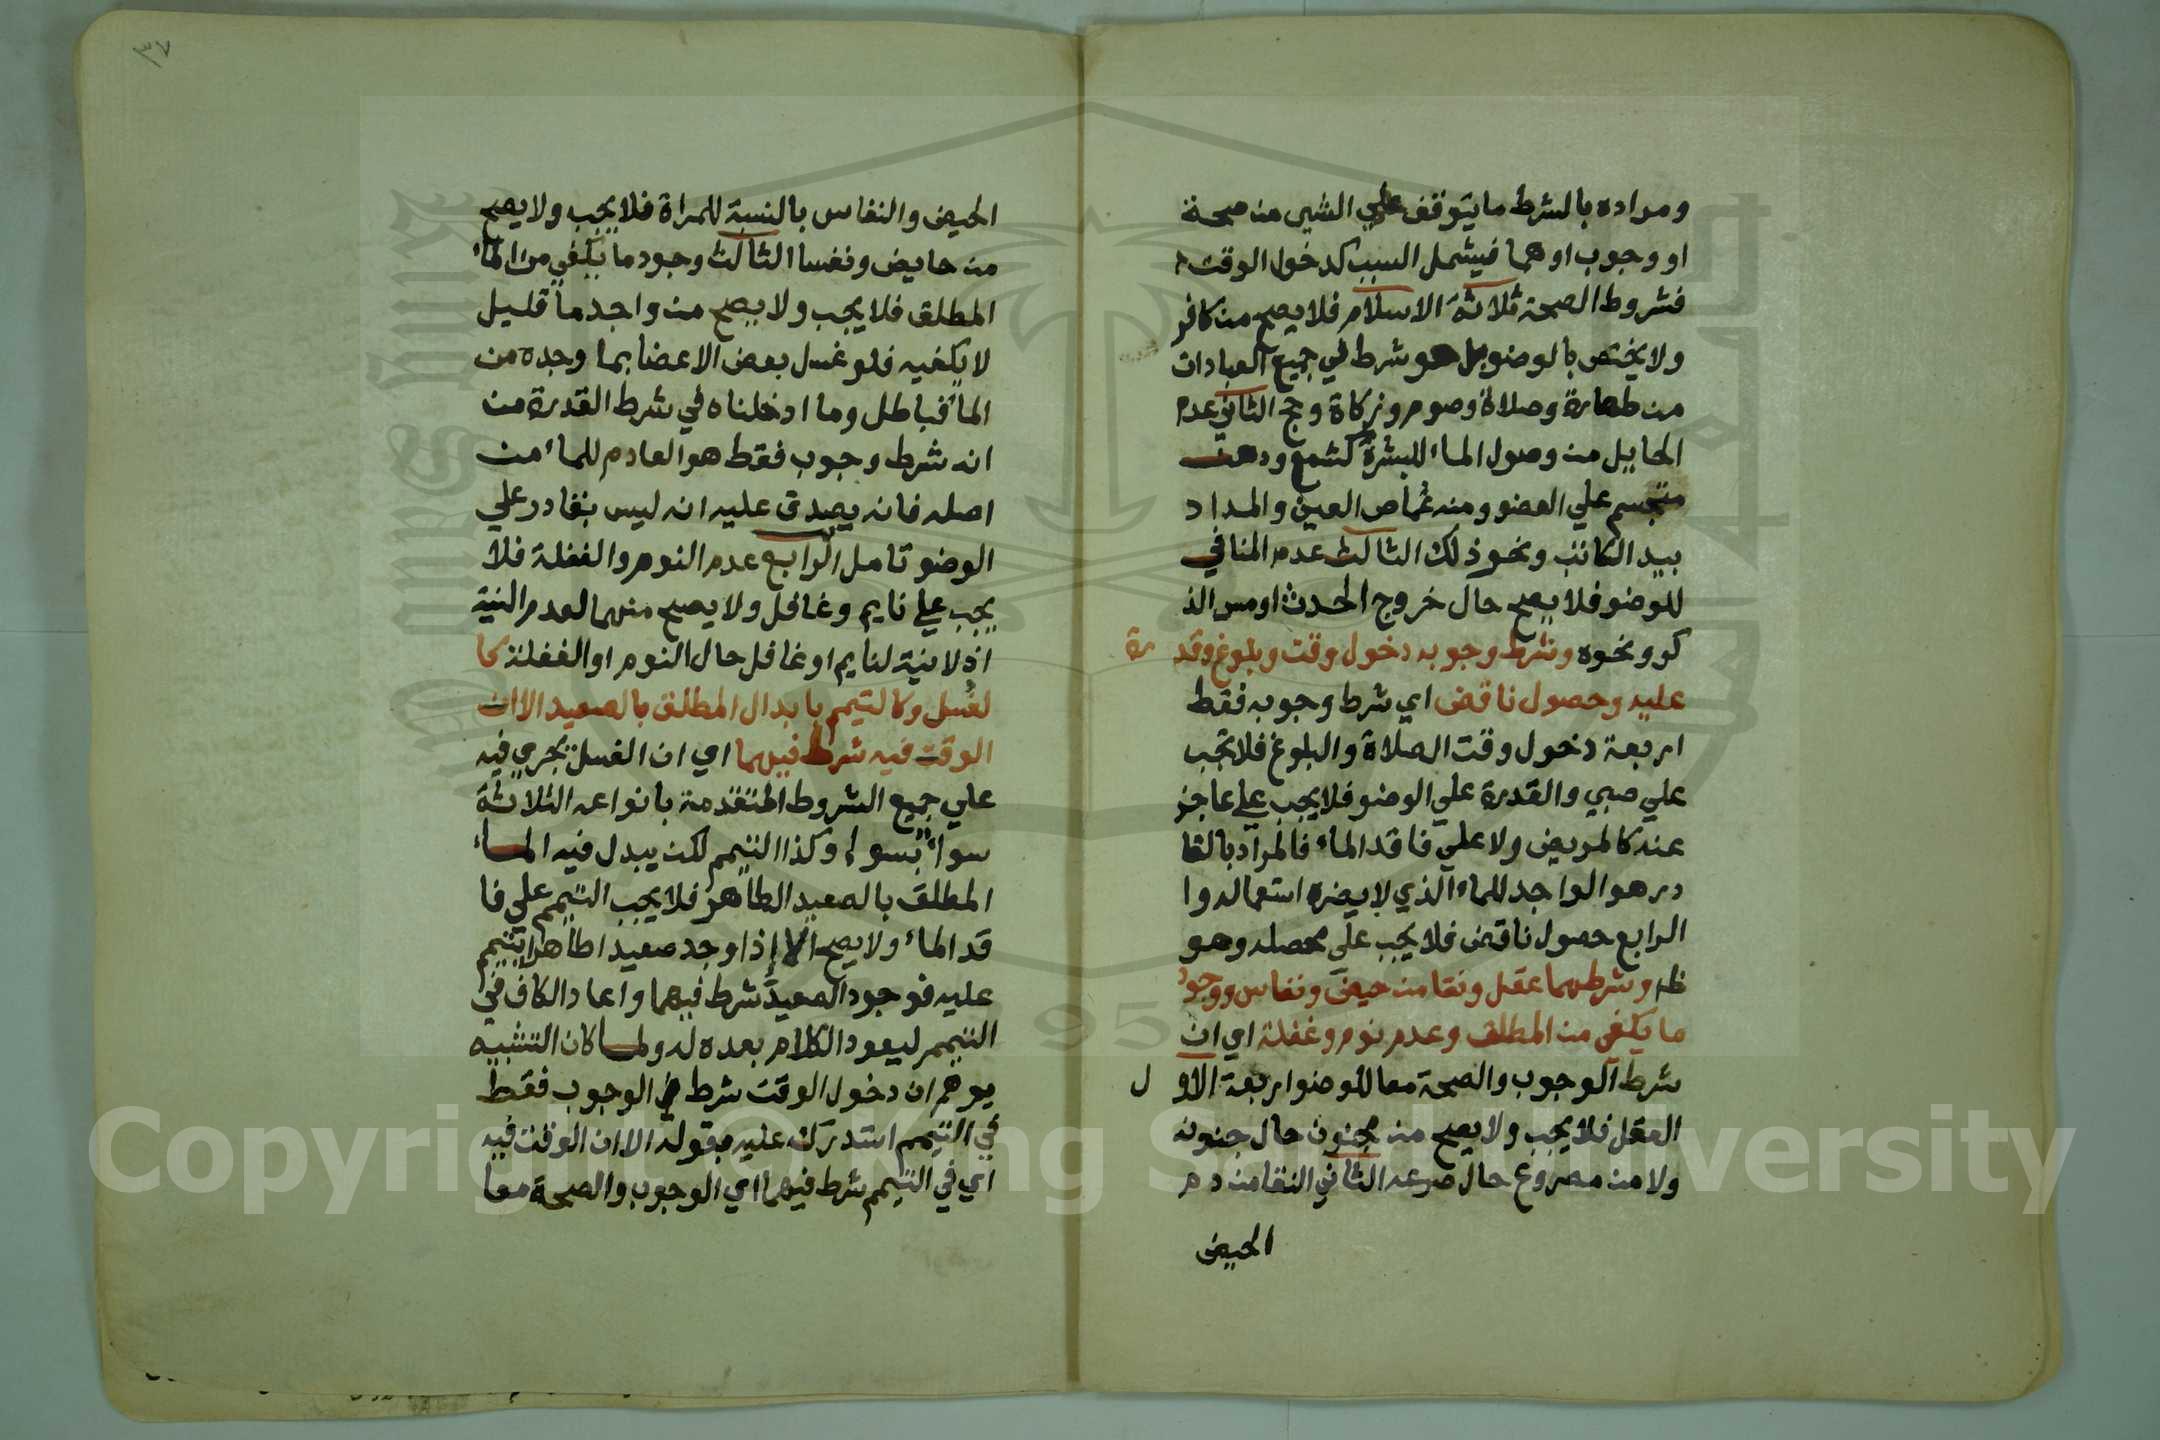 ومراده بالشرط ما يتوقف علي الشي من صحة
او وجوب او هما فيشمل السبب كدخول الوقت
فشروط الصحة ثلاثة الاسلام فلا يصح من كافر
ولا يختص بالوضو بل هو شرط في جميع العبادات
من طهارة وصلاة وصوم وزكاة وحج الثاني عدم
الحايل من وصول الماء للبشرة كشمع ودهن
متجسم علي العضو ومنه عُماص العين والمداد
بيد الكاتب ونحو ذلك الثالث عدم المنافي
للوضو فلا يصح حال خروج الحدث او مس الذ
كر ونحوه وشرط وجوبه دخول وقت وبلوغ وقد رة
عليه وحصول ناقض اي شرط وجوبه فقط
اربعة دخول وقت الصلاة والبلوغ فلا تجب
علي صبي والقدرة علي الوضو فلا يجب علي عاجز
عنه كالمريض ولا علي فاقد الماء فالمراد بالقا
در هو الواجد للماء الذي لا يضره استعماله وا
الرابع حصول ناقض فلا يجب علي محصله وهو
ظه وشرطهما عقل ونقا من حيض ونفاس ووجود
ما يكفي من المطلق وعدم نوم وغفلة اي ان
شرط الوجوب والصحة معا للوضو اربعة الاو ل
العقل فلا يجب ولا يصح من مجنون حال جنونه
ولا من مصروع حال صرعه الثاني النقا من دم
الحيض
٣٧
الحيض والنفاس بالنسبة للمراة فلا يجب ولا يصح
من حايض ونفسا الثالث وجود ما يكفي من الماء
المطلق فلا يجب ولا يصح من واجد ما قليل
لا يكفيه فلو غسل بعض الاعضا بما وجده من
الماء فباطل وما ادخلناه في شرط القدرة من
انه شرط وجوب فقط هو العادم للماء من
اصله فانه يصدق عليه انه ليس بقادر علي
الوضو تامل الرابع عدم النوم والغفلة فلا
يجب علي نايم وغافل ولا يصح منهما لعدم النية
اذ لا نية لنايم او غافل حال النوم او الغفلة كا
لغُسل وكالتيمم بابدال المطلق بالصعيد الا ان
الوقت فيه شرط فيهما اي ان الغسل يجري فيه
علي جميع الشروط المتقدمة بانواعه الثلاثة
سواء بسوا وكذا التيمم لكن يبدل فيه الماء
المطلق بالصعيد الطاهر فلا يجب التيمم علي فا
قد الماء ولا يصح الا إذا وجد صعيدا طاهرا يتيمم
عليه فوجود الصعيد شرط فيهما واعاد الكاف في
التيمم ليعود الكلام بعده له ولما كان التشبيه
يوهم ان دخول الوقت شرط في الوجوب فقط
في التيمم استدرك عليه بقوله الا ان الوقت فيه
اي في التيمم شرط فيهما اي الوجوب والصحة معا
Copyright © King Saud University
1957